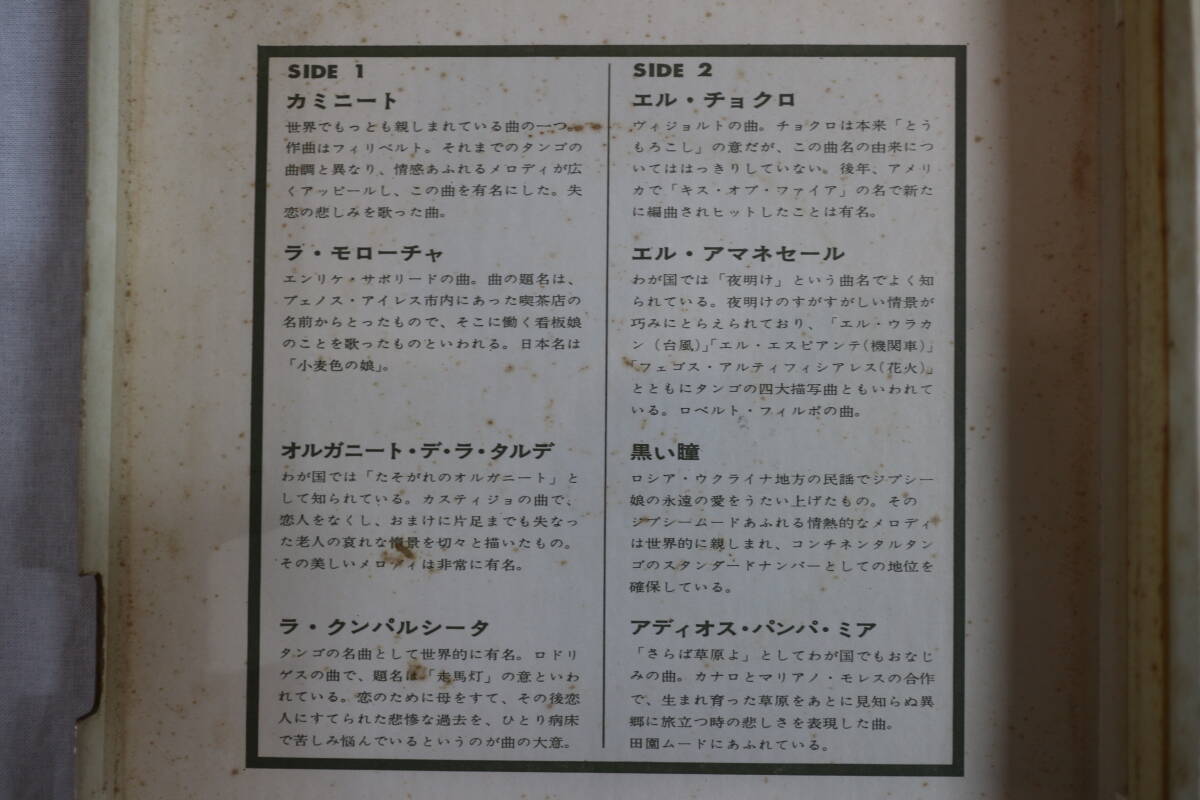 SIDE 1
カミニート
世界でもっとも親しまれている曲の一つ。
作曲はフィリベルト。それまでのタンゴの
曲調と異なり、情感あふれるメロディが広
くアッピールし、この曲を有名にした。失
恋の悲しみを歌った曲。
ラ・モローチャ
エンリケ・サボリードの曲。曲の題名は、
ブェノス・アイレス市内にあった喫茶店の
名前からとったもので、そこに働く看板娘
のことを歌ったものといわれる。日本名は
「小麦色の娘」。
オルガニート・デ・ラ・タルデ
わが国では「たそがれのオルガニート」と
して知られている。カスティジョの曲で、
恋人をなくし、おまけに片足までも失なっ
た老人の哀れな情景を切々と描いたもの。
その美しいメロディは非常に有名。
ラ・クンパルシータ
タンゴの名曲として世界的に有名。ロドリ
ゲスの曲で、題名は「走馬灯」の意といわ
れている。恋のために母をすて、その後恋
人にすてられた悲惨な過去を、ひとり病床
で苦しみ悩んでいるというのが曲の大意。
SIDE 2
エル・チョクロ
ヴィジョルトの曲。チョクロは本来「とう
もろこし」の意だが、この曲名の由来につ
いてははっきりしていない。後年、アメリ
カで「キス・オブ・ファイア」の名で新た
に編曲されヒットしたことは有名。
エル・アマネセール
わが国では「夜明け」という曲名でよく知
られている。夜明けのすがすがしい情景が
巧みにとらえられており、「エル・ウラカ
ン（台風）」「エル・エスピアンテ（機関車）」
「フェゴス・アルティフィシアレス（花火）」
とともにタンゴの四大描写曲ともいわれて
いる。ロベルト・フィルポの曲。
黒い瞳
ロシア・ウクライナ地方の民謡でジプシー
娘の永遠の愛をうたい上げたもの。その
ジプシームードあふれる情熱的なメロディ
は世界的に親しまれ、コンチネンタルタン
ゴのスタンダードナンバーとしての地位を
確保している。
アディオス・パンパ・ミア
「さらば草原よ」としてわが国でもおなじ
みの曲。カナロとマリアノ・モレスの合作
で、生まれ育った草原をあとに見知らぬ異
郷に旅立つ時の悲しさを表現した曲。
田園ムードにあふれている。